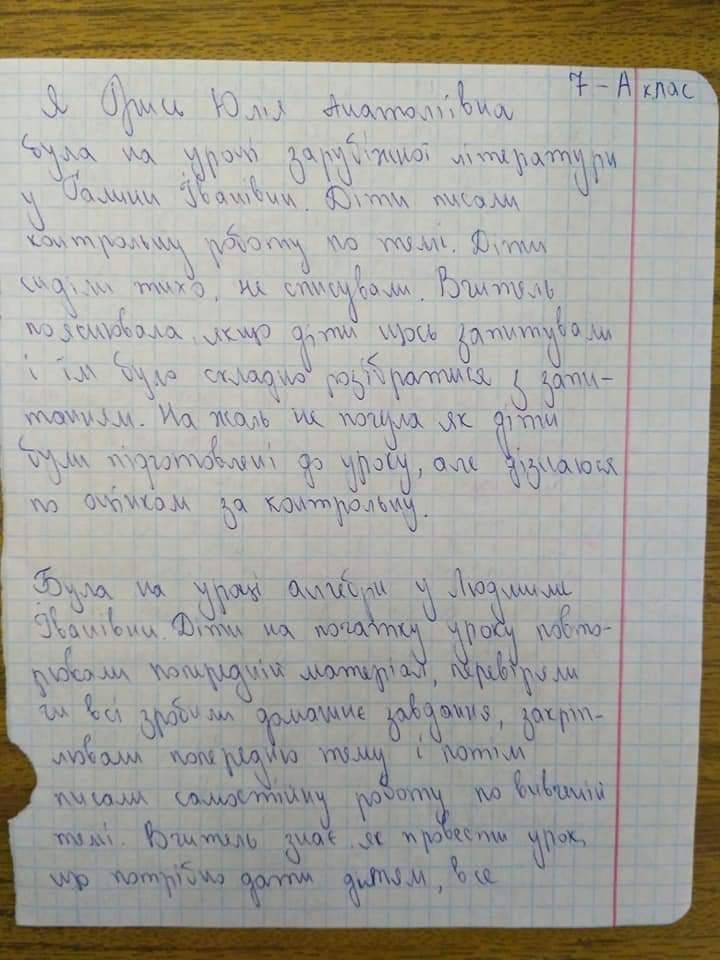 7-А клас
Я Юлія Анатоліївна
була на уроці зарубіжної літератури
у Галини Іванівни. Діти писали
контрольну роботу по темі. Діти
сиділи тихо, не списували. Вчитель
пояснювала, якщо діти щось запитували
і їм було складно розібратися з запи-
танням. На жаль не почула як діти
були підготовлені до уроку, але дізнаюся
по оцінкам за контрольну.
Була на уроці алгебри у Людмили
Іванівни. Діти на початку уроку повто-
рювали попередній матеріал, перевіряли
чи всі зробили домашнє завдання, закріп-
лювали попередню тему і потім
писали самостійну роботу по вивченій
темі. Вчитель знає як провести урок,
що потрібно дати дитям, все